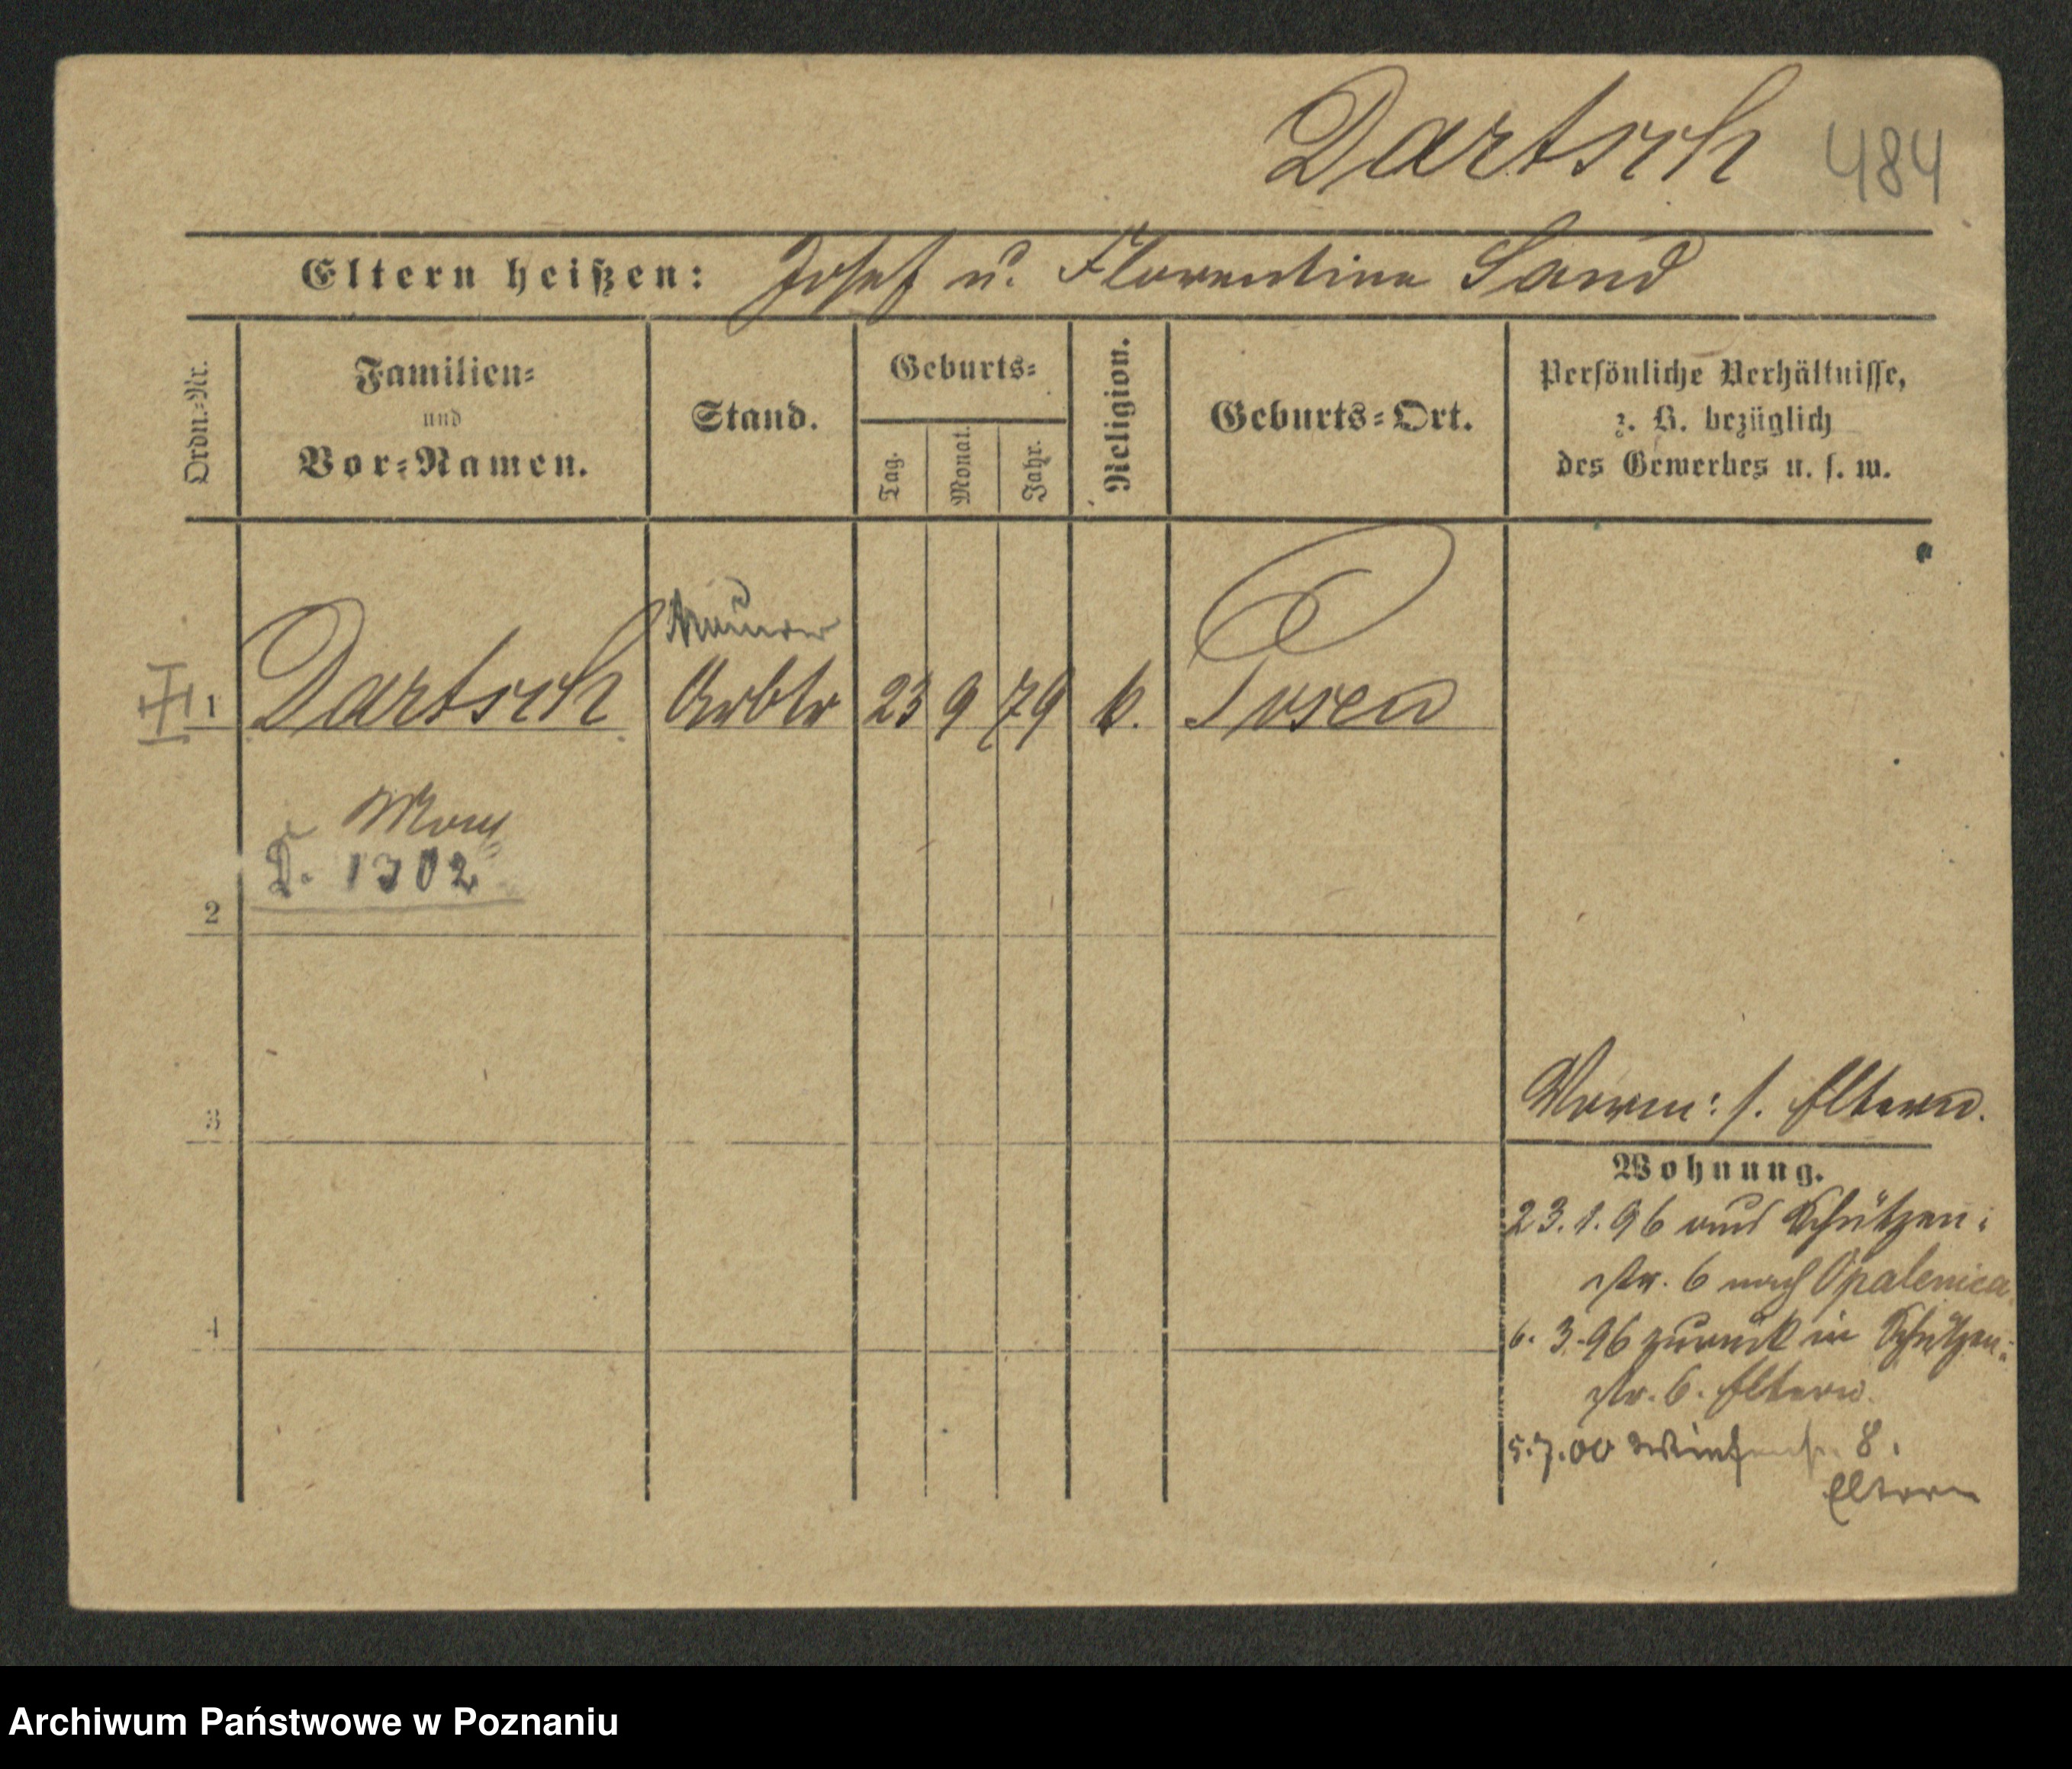 Dartsch 484
Eltern heißen: Josef u. Florentina Sand
Ordn.=Nr.
Familien=
und
Vor=Namen.
Stand.
Geburts=
Tag.
Monat.
Jahr.
Religion.
Geburts=Ort.
Persönliche Verhältnisse,
z. B. bezüglich
des Gewerbes u. s. w.
Maurer
1 Dartsch Arbtr 23 9 79 k. Posen
Max
D. 1302
2
3
Vorm: s. Eltern.
Wohnung.
23.1.96 aus Schützen=
str. 6 nach Opalenica
4
6.3.96 zurück in Schützen=
str. 6. Eltern.
5.7.00 8.
Eltern
Archiwum Państwowe w Poznaniu